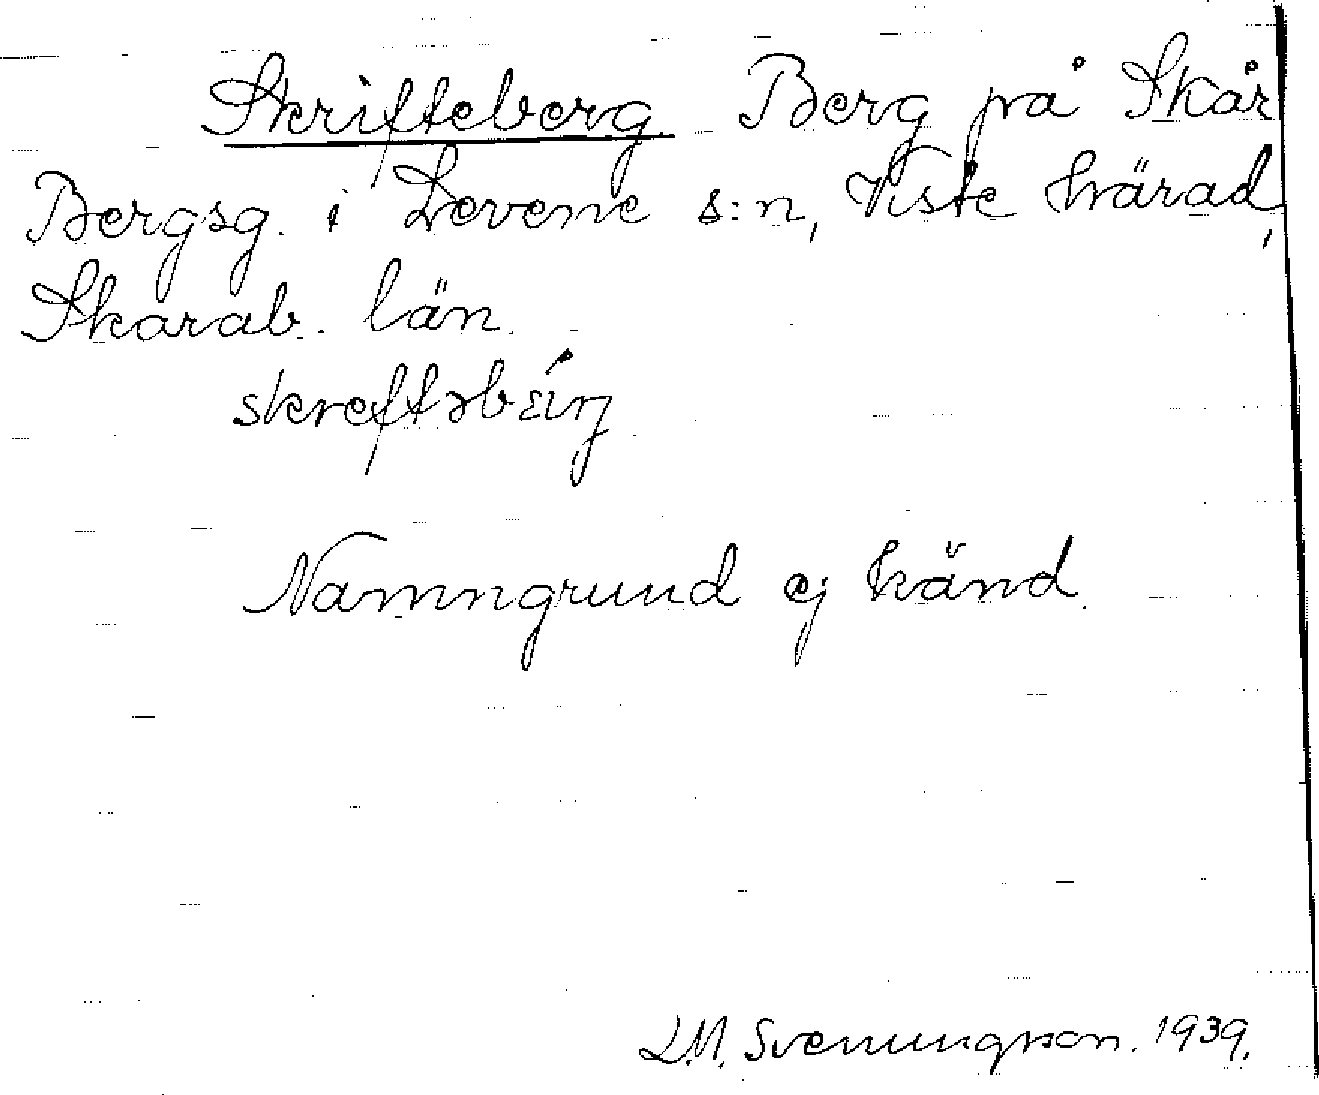 Skrifteberg Berg på Skår
Bergsg. i Levene s:n, Viste härad,
Skarab. län.
skreftəbǽrj
Namngrund ej känd.
L.M. Svenungsson. 1939.